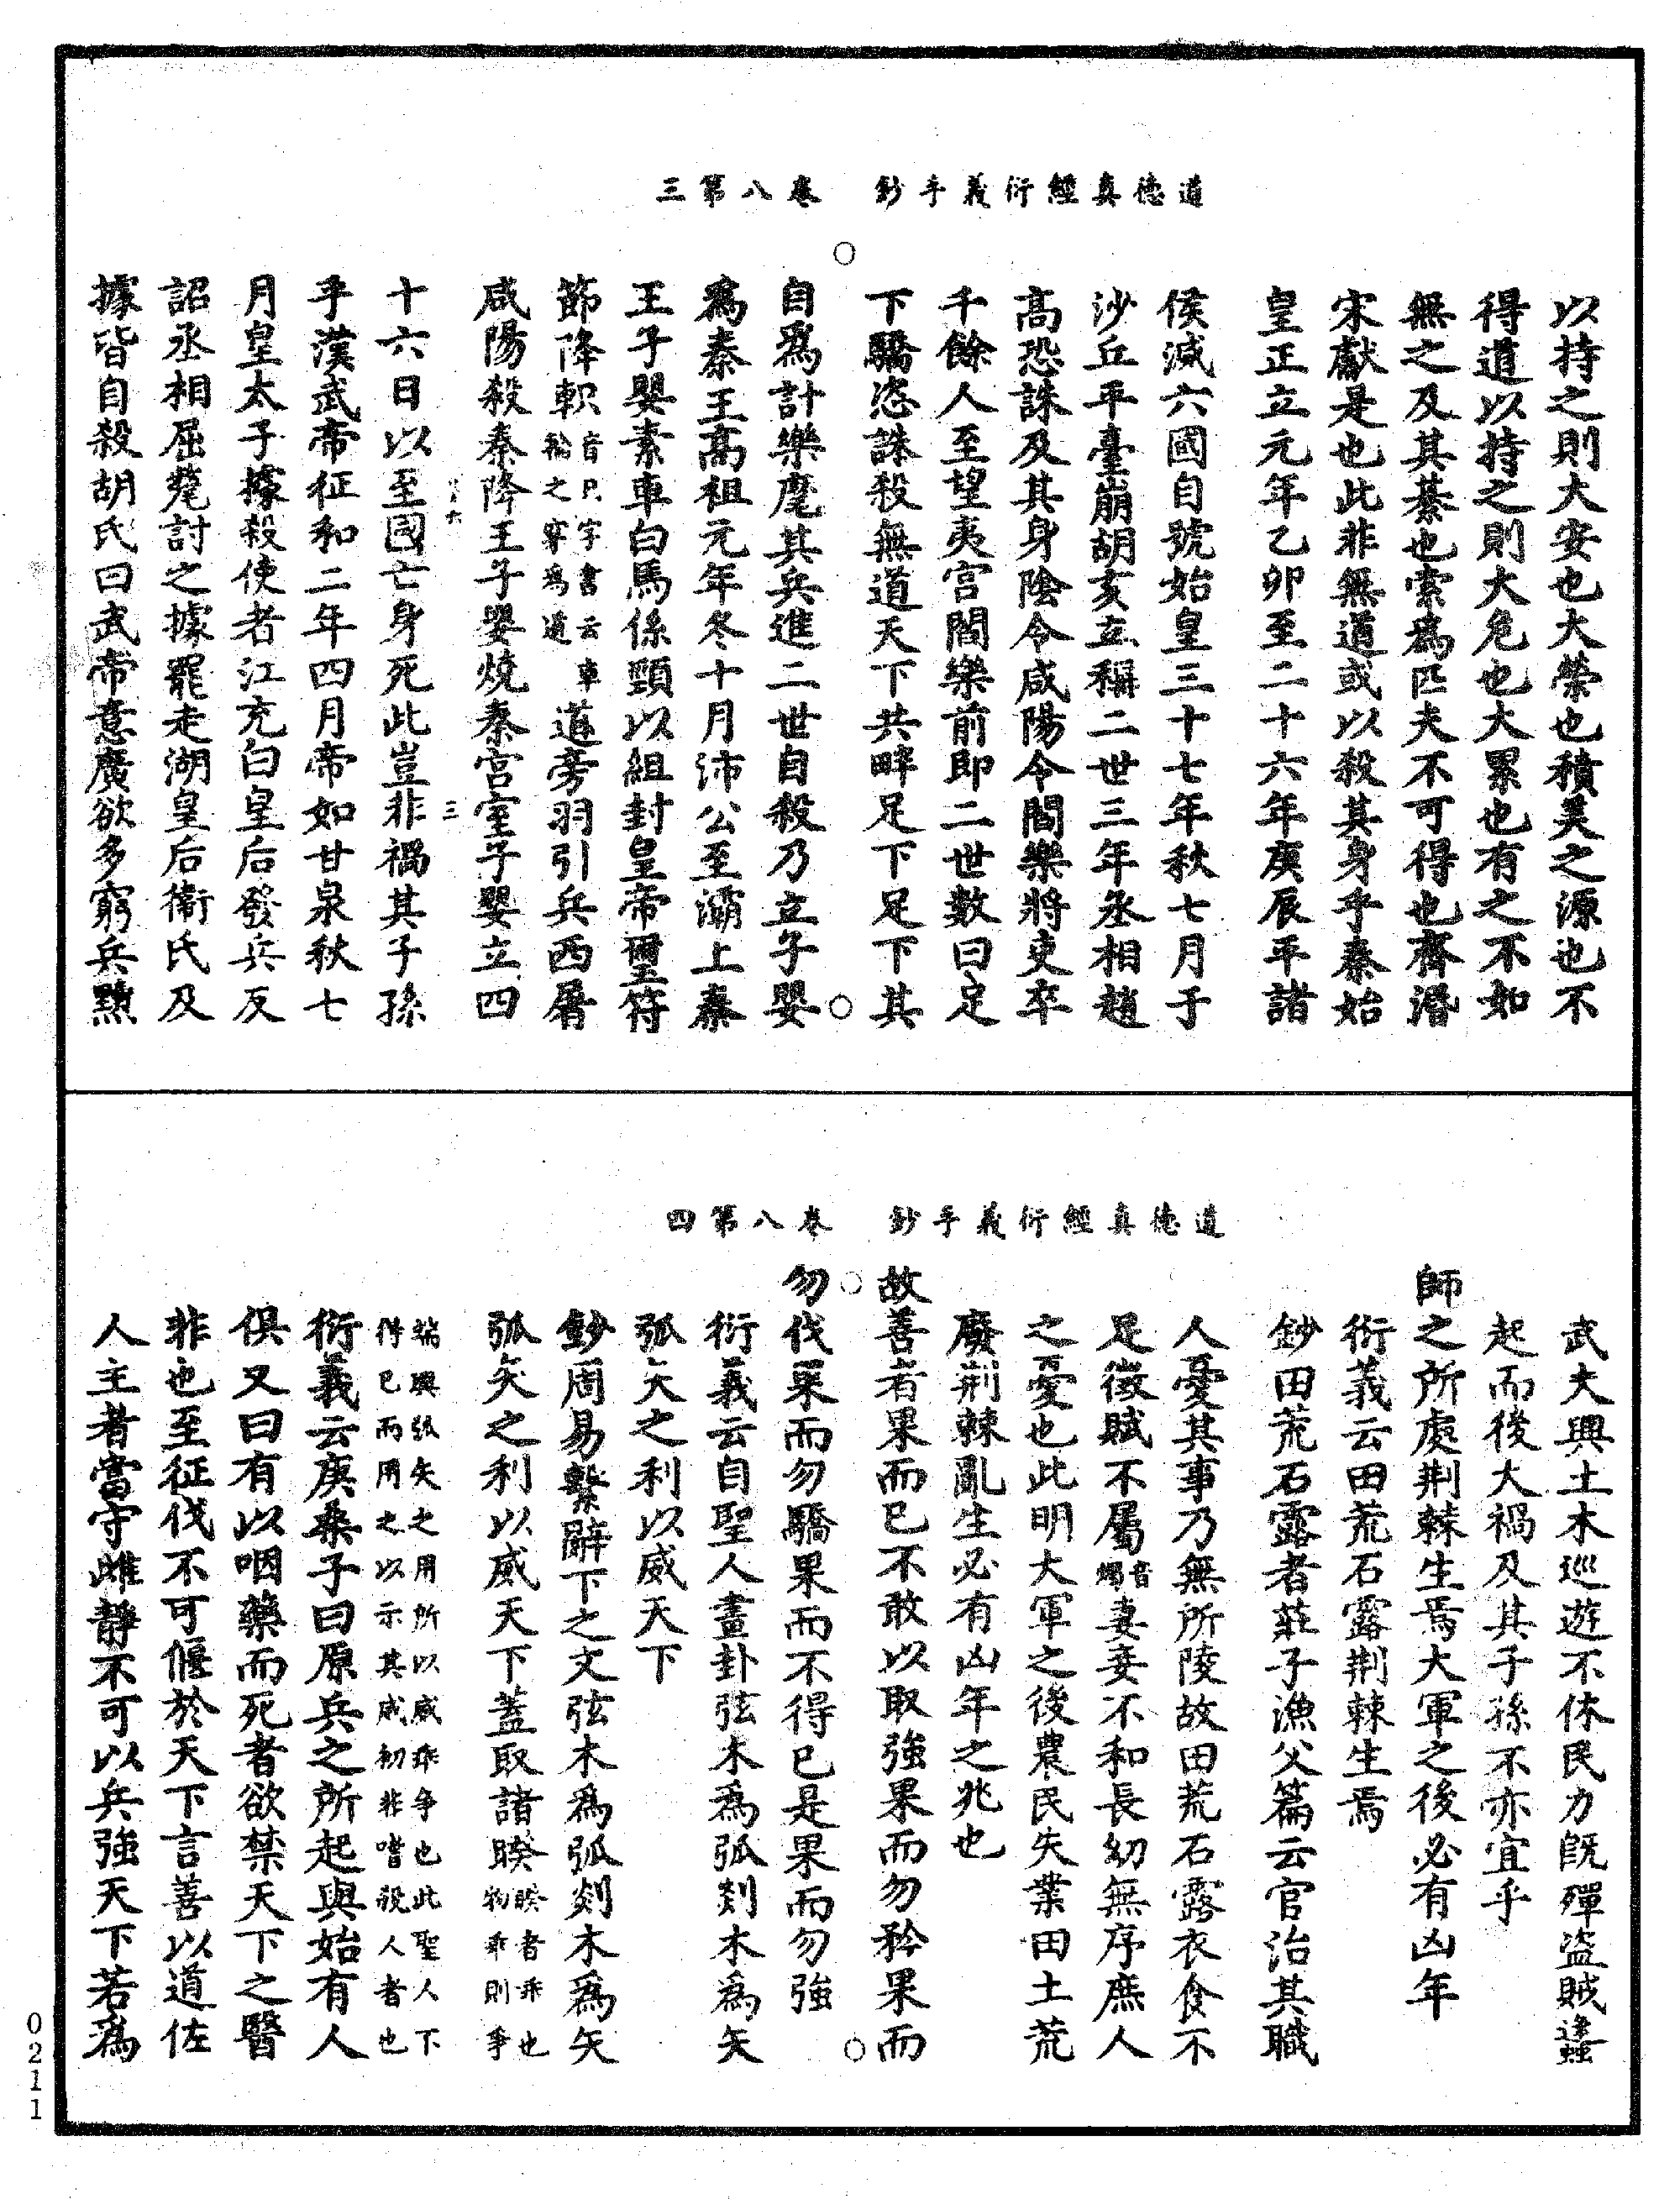 道德真經衍義手鈔　卷八第三
以持之則大安也大榮也積美之源也不
得道以持之則大危也大累也有之不如
無之及其綦也索爲匹夫不可得也齊湣
宋獻是也此非無道或以殺其身乎秦始
皇正立元年乙卯至二十六年庚辰平諸
侯滅六國自號始皇三十七年秋七月于
沙丘平臺崩胡亥立稱二世三年丞相趙
高恐誅及其身陰令咸陽令閻樂將吏卒
千餘人至望夷宫閻樂前即二世數曰足
下驕恣誅殺無道天下共畔足下足下其
自爲計樂麾其兵進二世自殺乃立子嬰
爲秦王高祖元年冬十月沛公至灞上秦
王子嬰素車白馬係頸以組封皇帝璽符
節降軹音只字書云車輪之穿爲道道旁羽引兵西屠
咸陽殺秦降王子嬰燒秦宫室子嬰立四
三
十六日以至國亡身死此豈非禍其子孫
乎漢武帝征和二年四月帝如甘泉秋七
月皇太子據殺使者江充白皇后發兵反
詔丞相屈氂討之據罷走湖皇后衛氏及
據皆自殺胡氏曰武帝意廣欲多窮兵黷
道德真經衍義手鈔　卷八第四
武夫興土木巡遊不休民力旣殫盜賊蠭
起而後大禍及其子孫不亦宜乎
師之所處荆棘生焉大軍之後必有凶年
衍義云田荒石露荆棘生焉
鈔田荒石露者莊子漁父篇云官治其職
人憂其事乃無所陵故田荒石露衣食不
足徵賦不屬音燭妻妾不和長幼無序庶人
之憂也此明大軍之後農民失業田土荒
廢荆棘亂生必有凶年之兆也
故善者果而已不敢以取強果而勿矜果而
勿伐果而勿驕果而不得已是果而勿強
衍義云自聖人畫卦弦木爲弧剡木爲矢
弧矢之利以威天下
鈔周易繫辭下之文弦木爲弧剡木爲矢
弧矢之利以威天下蓋取諸睽睽者乖也物乖則爭
端興弧矢之用所以威乖争也此聖人下
得已而用之以示其威初非嗜殺人者也
衍義云庚桑子曰原兵之所起與始有人
俱又曰有以咽藥而死者欲禁天下之醫
非也至征伐不可偃於天下言善以道佐
人主者當守雌靜不可以兵強天下若爲
0211